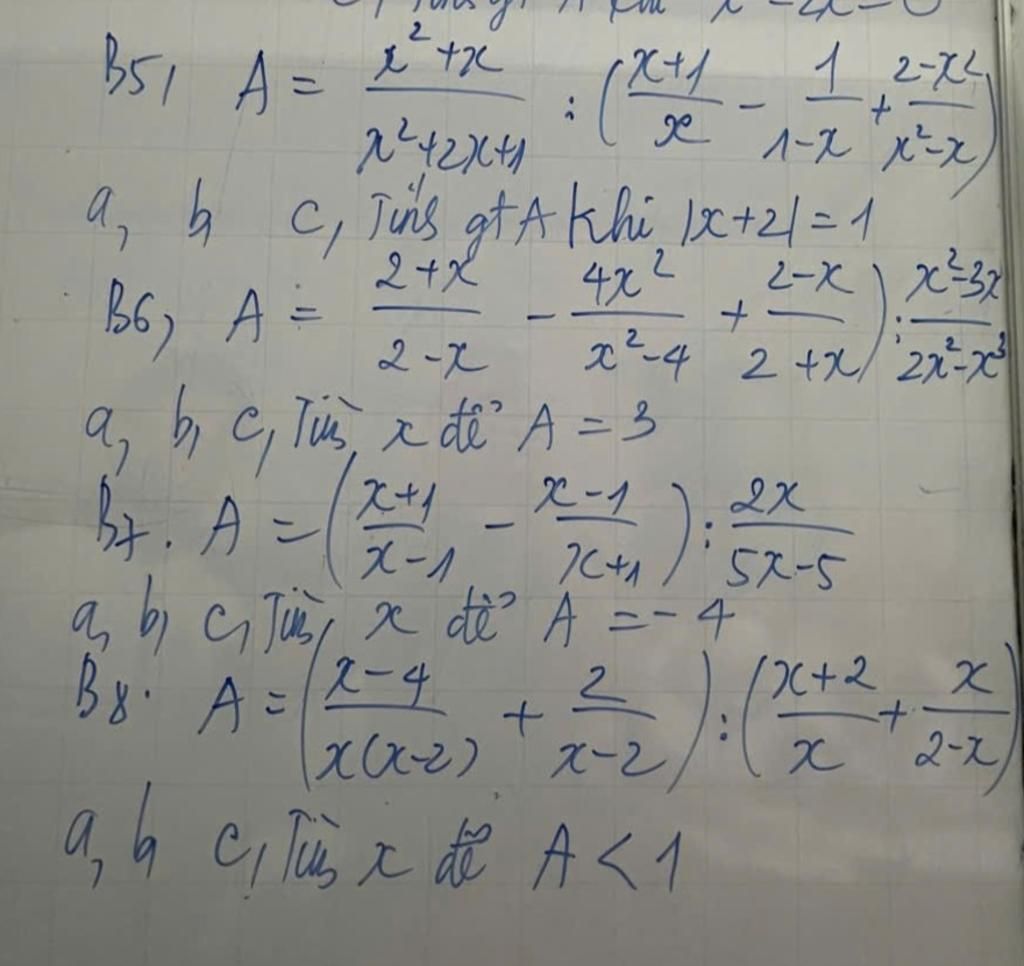 c, Tính gt A khi x² - 2x = 0
B5, A = \frac{x²+x}{x²+2x+1} : (\frac{x+1}{x} - \frac{1}{1-x} + \frac{2-x²}{x²-x})
a, b, c, Tính gt A khi |x+2| = 1
B6, A = \frac{2+x}{2-x} - \frac{4x²}{x²-4} + \frac{2-x}{2+x}) : \frac{x²-3x}{2x²-x³}
a, b, c, Tìm x để A = 3
B7. A = (\frac{x+1}{x-1} - \frac{x-1}{x+1}) : \frac{2x}{5x-5}
a, b, c, Tìm x để A = -4
B8. A = (\frac{x-4}{x(x-2)} + \frac{2}{x-2}) : (\frac{x+2}{x} + \frac{x}{2-x})
a, b, c, Tìm x để A < 1